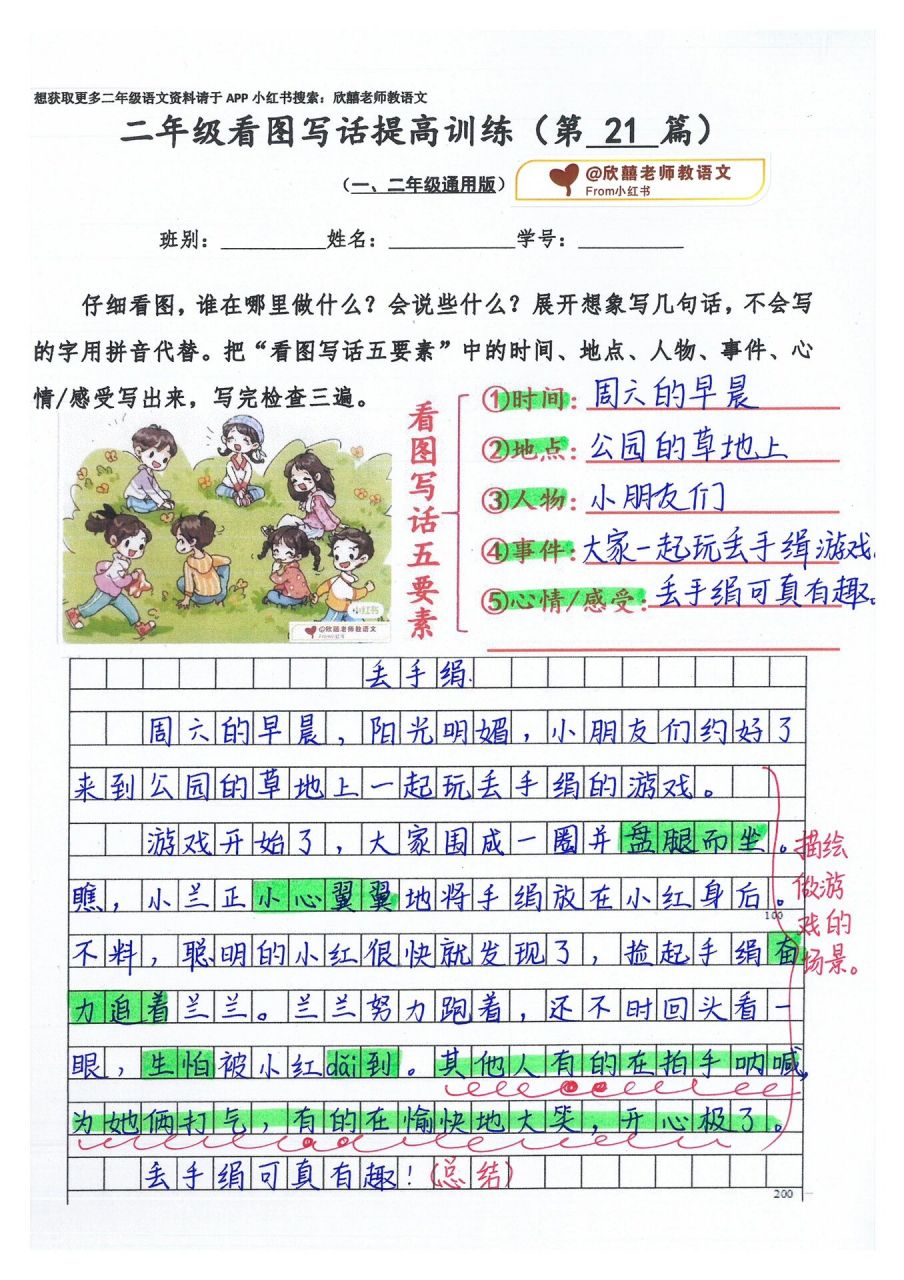 想获取更多二年级语文资料请于 APP 小红书搜索：欣囍老师教语文
二年级看图写话提高训练（第 21 篇）
（一、二年级通用版）
@欣囍老师教语文
From小红书
班别：__________姓名：____________学号：__________
仔细看图，谁在哪里做什么？会说些什么？展开想象写几句话，不会写
的字用拼音代替。把“看图写话五要素”中的时间、地点、人物、事件、心
情/感受写出来，写完检查三遍。
看图写话五要素
①时间：周六的早晨
②地点：公园的草地上
③人物：小朋友们
④事件：大家一起玩丢手绢游戏。
⑤心情/感受：丢手绢可真有趣。
小红书
@欣囍老师教语文
From小红书
丢手绢
周六的早晨，阳光明媚，小朋友们约好了
来到公园的草地上一起玩丢手绢的游戏。
游戏开始了，大家围成一圈并盘腿而坐。
瞧，小兰正小心翼翼地将手绢放在小红身后。
100
不料，聪明的小红很快就发现了，捡起手绢奋
力追着兰兰。兰兰努力跑着，还不时回头看一
眼，生怕被小红dǎi到。其他人有的在拍手呐喊，
为她俩打气，有的在愉快地大笑，开心极了。
丢手绢可真有趣！（总结）
200
描绘
做游
戏的
场景。